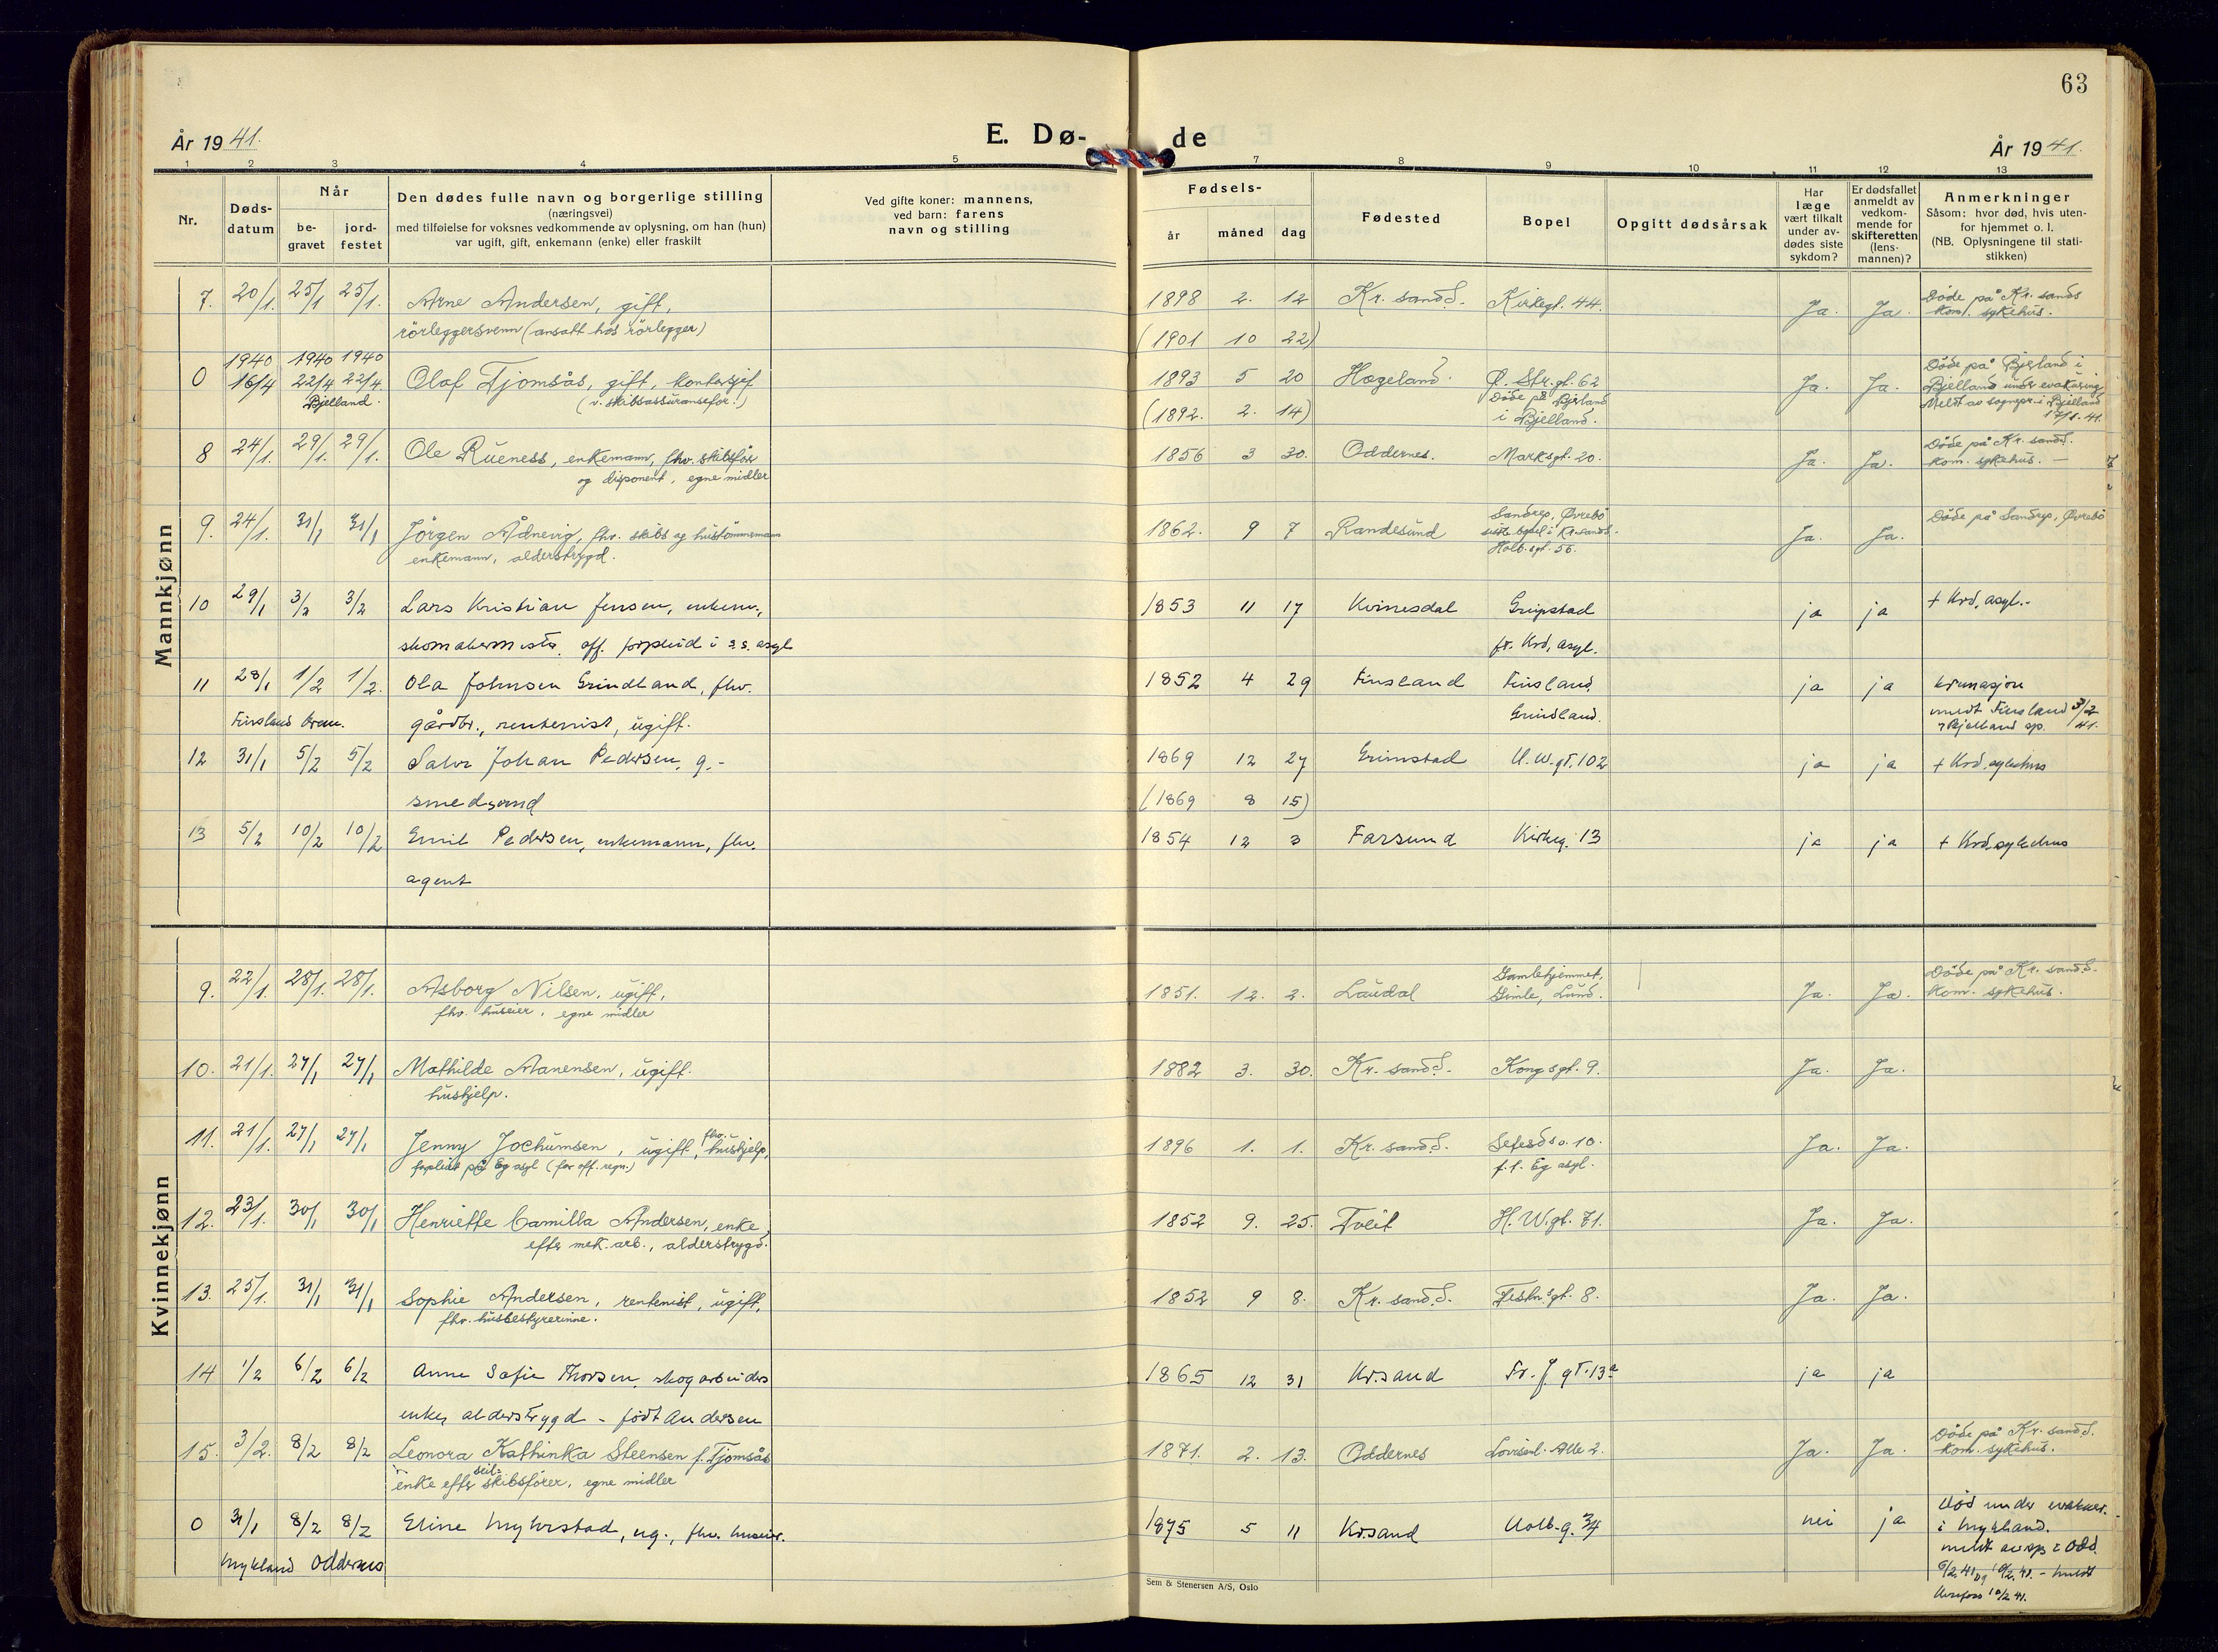 63
År 1941.
E. Dø-
de
År 1941.
1 2 3 4 5 7 8 9 10 11 12 13
Nr.
Døds-
datum
Når
be-
gravet
jord-
festet
Den dødes fulle navn og borgerlige stilling
(næringsvei)
med tilføielse for voksnes vedkommende av oplysning, om han (hun)
var ugift, gift, enkemann (enke) eller fraskilt
Ved gifte koner: mannens,
ved barn: farens
navn og stilling
Fødsels-
år måned dag
Fødested
Bopel
Opgitt dødsårsak
Har
læge
vært tilkalt
under av-
dødes siste
sykdom?
Er dødsfallet
anmeldt av
vedkom-
mende for
skifteretten
(lens-
mannen)?
Anmerkninger
Såsom: hvor død, hvis uten-
for hjemmet o. l.
(NB. Oplysningene til stati-
stikken)
Mannkjønn
7. 20/1. 25/1 25/1. Arne Andersen, gift, 1898 2. 12 Kr.sand S. Kirkegt. 44. Ja. Ja. Døde på Kr.sands
rørleggersvenn (ansatt hos rørlegger) kom. sykehus.
(1901 10 22)
1940 1940 1940
0 16/4 22/4 22/4. Olaf Tjomsås, gift, kontorsjef 1893 5 20 Hægeland. Ø. Str.gt. 62 Ja. Ja. Døde på Bjerland i
Bjelland. (v. skibsassuransefor.) Døde på Bjerland Bjelland under evakuering
(1892. 2. 14) i Bjelland. Meldt av sognepr. i Bjelland
17/1.-41.
8 24/1. 29/1. 29/1. Ole Rueness, enkemann, fhv. skibsfør. 1856 3 30. Oddernes. Marksgt. 20. Ja. Ja. Døde på Kr.sand S.
og disponent, egne midler kom. sykehus. –
9. 24/1. 31/1 31/1 Jørgen Ådnevig, fhv. skibs og hustømmermann 1862. 9 7 Randesund Sandrep, Øvrebø Ja. Ja. Døde på Sandrep, Øvrebø
enkemann, alderstrygd. siste bopel i Kr.sand S.
Holb.sgt. 56.
10 29/1 3/2 3/2 Lars Kristian Jensen, enkem., 1853 11 17 Kvinesdal Gripstad ja ja + Krd. asyl.-
skomakermester, off. forpleid i s.s. asyl fr. Krd. asyl.
11 28/1 1/2 1/2. Ola Johnsen Grindland, fhv. 1852 4 29 Finsland Finsland, ja ja kremasjon
Finsland Krem. gårdbr., rentenist, ugift. Grindland. meldt Finsland 3/2
Bjelland sp. 41.
12 31/1 5/2 5/2 Salve Johan Pedersen, g.- 1869 12 27 Grimstad H.W.gt. 102 ja ja + Krd. sykehus
smedsvend (1869 8 15)
13 5/2 10/2 10/2 Emil Pedersen, enkemann, fhv. 1854 12 3 Farsund Kirkeg. 13 ja ja + Krd. sykehus
agent
Kvinnekjønn
9. 22/1. 28/1. 28/1. Asborg Nilsen, ugift, 1851. 12. 2. Laudal Gamlehjemmet, Ja. Ja. Døde på Kr.sand S.
fhv. huseier, egne midler Gimle, Lund. kom. sykehus.
10. 21/1. 27/1 27/1 Mathilde Aanensen, ugift. 1882 3. 30. Kr.sand S. Kongsgt. 9. Ja. Ja.
hushjelp.
11. 21/1. 27/1 27/1 Jenny Jochumsen, ugift, fhv. hushjelp, 1896 1. 1. Kr.sand S. Setesd.s v. 10. Ja. Ja.
forpleiet på Eg asyl (for off. regn.) f.t. Eg asyl.
12. 23/1. 30/1 30/1 Henriette Camilla Andersen, enke 1852 9. 25. Tveit H.W.gt. 71. Ja. Ja.
efter mek. arb., alderstrygd.
13. 25/1. 31/1 31/1 Sophie Andersen, rentenist, ugift, 1852 9 8. Kr.sand S. Festn.sgt. 8. Ja. Ja.
fhv. husbestyrerinne.
14 1/2 6/2 6/2 Anne Sofie Thorsen, skogarbeiders 1865 12 31 Kr.sand Fr. J. gt. 13a ja ja
enke, alderstrygd - født Andersen
15. 3/2. 8/2 8/2 Leonora Kathinka Steensen f. Tjomsås 1871. 2. 13. Oddernes Lovisenl. Alle 2. Ja. Ja. Døde på Kr.sand S.
enke efter seil-skibsfører, egne midler kom. sykehus.
0 31/1 8/2 8/2 Eline Myhrstad, ug., fhv. huseier. 1875 5 11 Kr.sand Holb.g. 34 nei ja død under evakuer.
Mykland Oddernes i Mykland.
meldt av sp. i Odd.
6/2 41 og 10/2 41. - meldt
10/2 41.
Sem & Stenersen A/S, Oslo